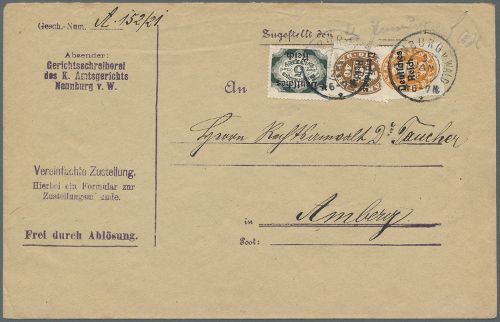 Gesch.-Num. A. 152/21
Zugestellt den
Absender:
Gerichtsschreiberei
des K. Amtsgerichts
Neunburg v. W.
An
Deutsches
Reich
Herrn Rechtsanwalt Dr. Taucher
Vereinfachte Zustellung.
Hierbei ein Formular zur
Zustellungsurkunde.
in Amberg
Post:
Frei durch Ablösung.